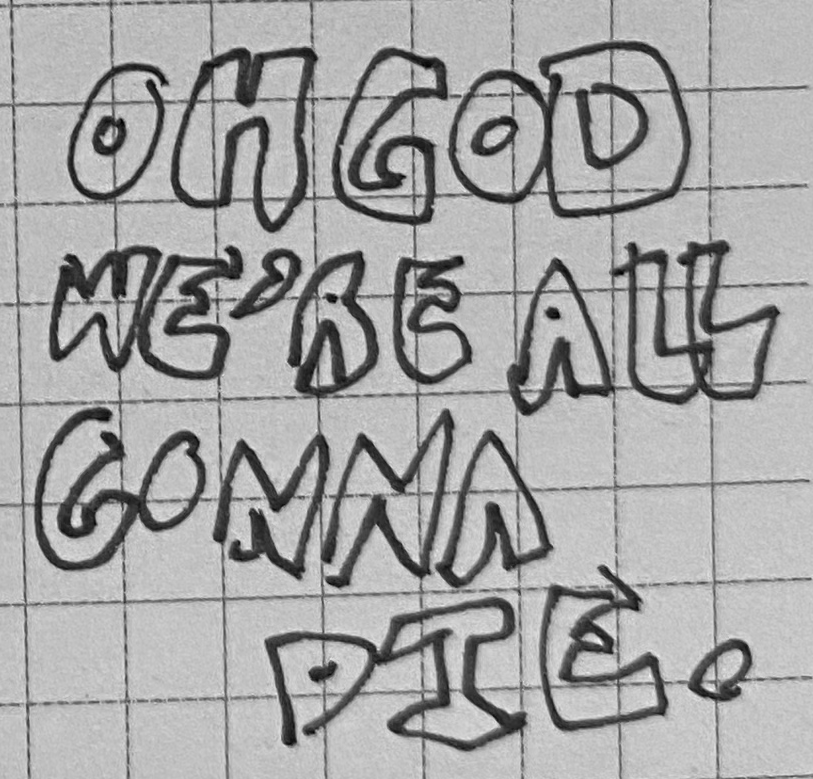 OH GOD
WE'RE ALL
GONNA
DIE.